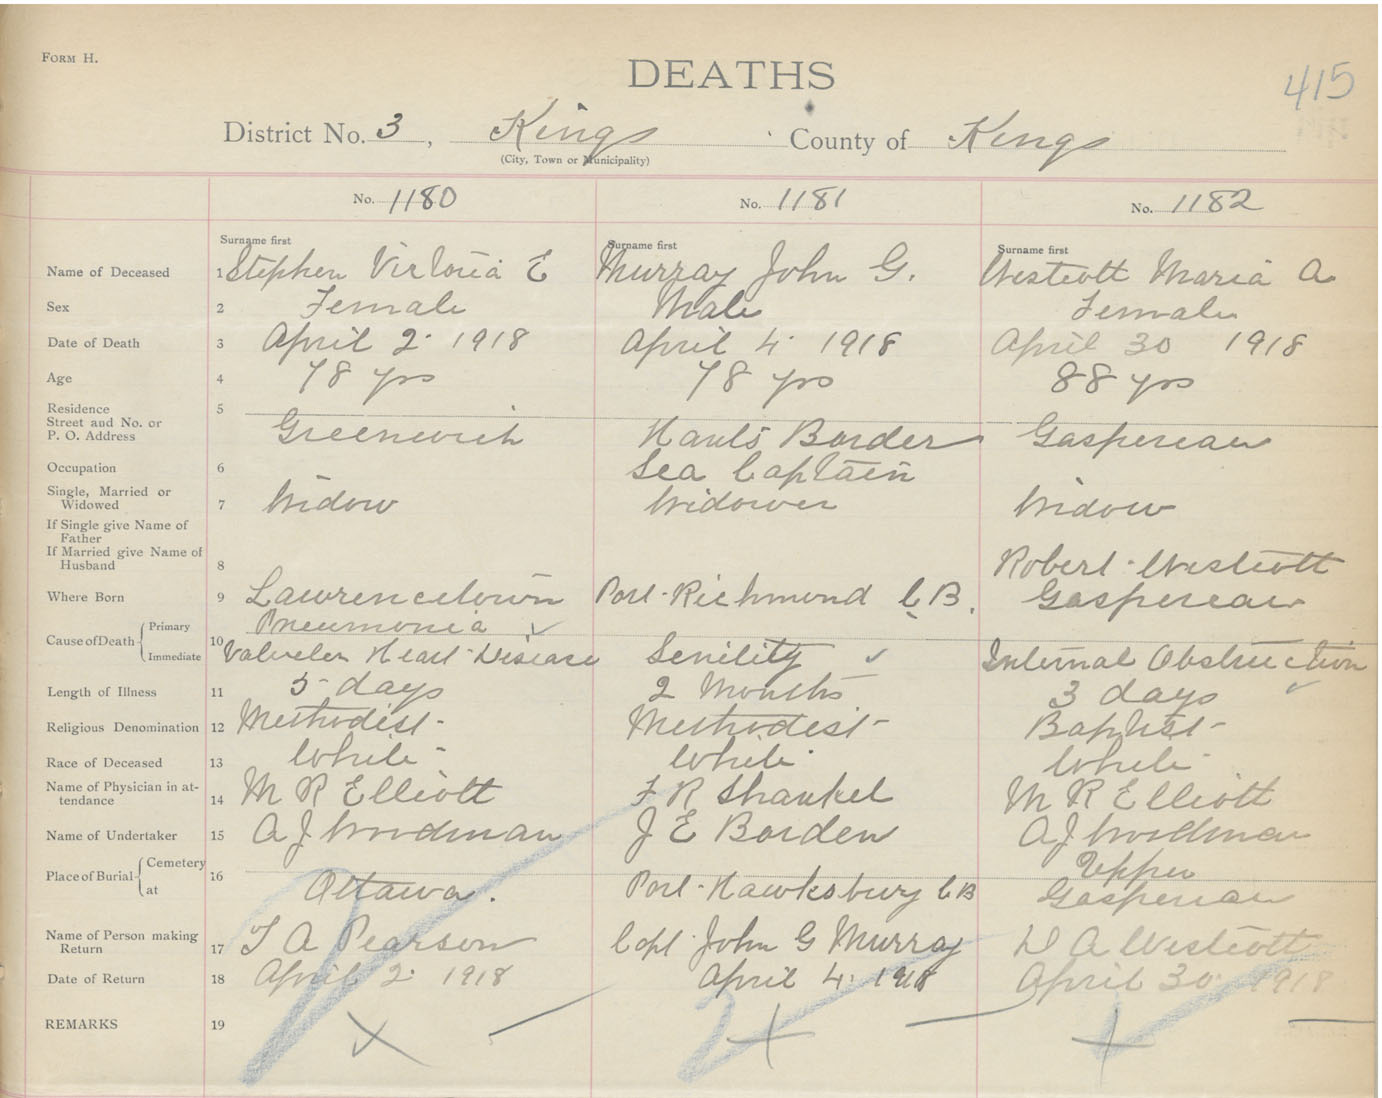 FORM H.
DEATHS
415
District No. 3, Kings County of Kings
(City, Town or Municipality)
No. 1180 No. 1181 No. 1182
Surname first Surname first Surname first
Name of Deceased 1 Stephen Victoria E Murray John G. Westcott Maria A
Sex 2 Female Male Female
Date of Death 3 April 2. 1918 April 4. 1918 April 30 1918
Age 4 78 yrs 78 yrs 88 yrs
Residence 5
Street and No. or
P. O. Address Greenwich Hants Border Gaspereau
Occupation 6 Sea Captain
Single, Married or
Widowed 7 Widow Widower Widow
If Single give Name of
Father
If Married give Name of
Husband 8 Robert Westcott
Where Born 9 Lawrencetown Port Richmond C.B. Gaspereau
Cause of Death Primary 10 Pneumonia
Immediate Valvular Heart Disease Senility Internal Obstruction
Length of Illness 11 5 days 2 Months 3 days
Religious Denomination 12 Methodist Methodist Baptist
Race of Deceased 13 White White White
Name of Physician in at-
tendance 14 M R Elliott F R Shankel M R Elliott
Name of Undertaker 15 A J Woodman J E Borden A J Woodman
Place of Burial Cemetery 16 Upper
at Ottawa. Port Hawksbury C B Gaspereau
Name of Person making
Return 17 T A Pearson Capt John G Murray A Westcott
Date of Return 18 April 2. 1918 April 4. 1918 April 30. 1918
REMARKS 19 X X X